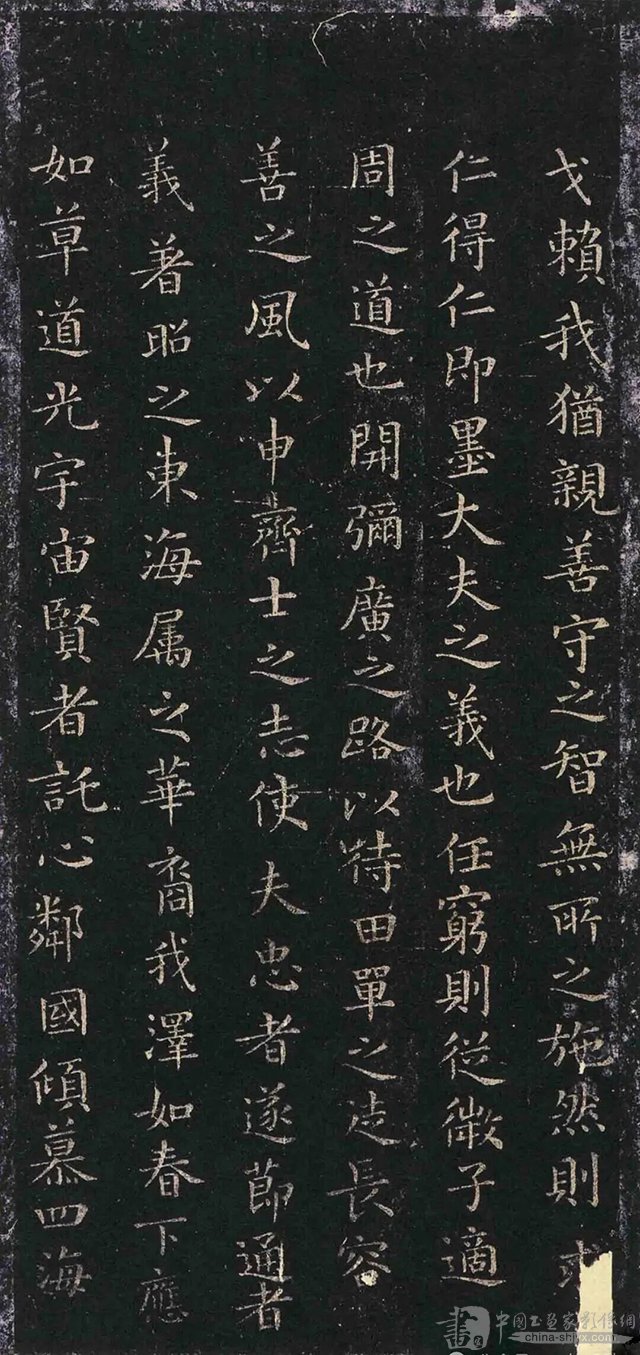 戈賴我猶親善守之智無所之施然則求
仁得仁即墨大夫之義也任窮則從微子適
周之道也開彌廣之路以待田單之徒長容
善之風以申齊士之志使夫忠者遂節通者
義著昭之東海属之華裔我澤如春下應
如草道光宇宙賢者託心鄰國傾慕四海
書 中国书画家影像網
china-shjyx.com